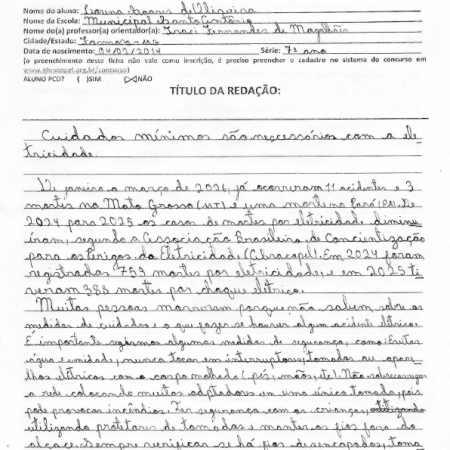 Nome do aluno: Lorena Soares de Oliveira
Nome da Escola: Municipal Santo Antônio
Nome do(a) professor(a) orientador(a): Iraci Fernandes de Magalhães
Cidade/Estado: - MG
Data de nascimento: 04/02/2014 Série: 7º ano
(o preenchimento deste ficha não vale como inscrição, é preciso preencher o cadastro no sistema do concurso em
ALUNO PCD? ( )SIM (X)NÃO
TÍTULO DA REDAÇÃO:
Cuidados mínimos são necessários com a ele
tricidade.
De janeiro a março de 2026, já ocorreram 11 acidentes e 3
mortes no Mato Grosso (MT) e uma morte no Pará (PA). De
2024 para 2025 os casos de mortes por eletricidade diminu
íram, segundo a Associação Brasileira de Conscientização
para os Perigos da Eletricidade (Abracopel). Em 2024 foram
registrados 759 mortes por eletricidade, e em 2025 ti
veram 388 mortes por choque elétrico.
Muitas pessoas morreram porque não sabem sobre as
medidas de cuidados e o que fazer se houver algum acidente elétrico.
É importante seguirmos algumas medidas de segurança, como: Evitar
água e umidade, nunca tocar em interruptores, tomadas ou apare
lhos elétricos com o corpo molhado (pés, mãos, etc). Não sobrecarregar
a rede colocando muitos adaptadores em uma única tomada, pois
pode provocar incêndios. Ter segurança com as crianças,
utilizando protetores de tomadas e manter os fios fora do
alcace. Sempre verificar se há fios desencapados, toma